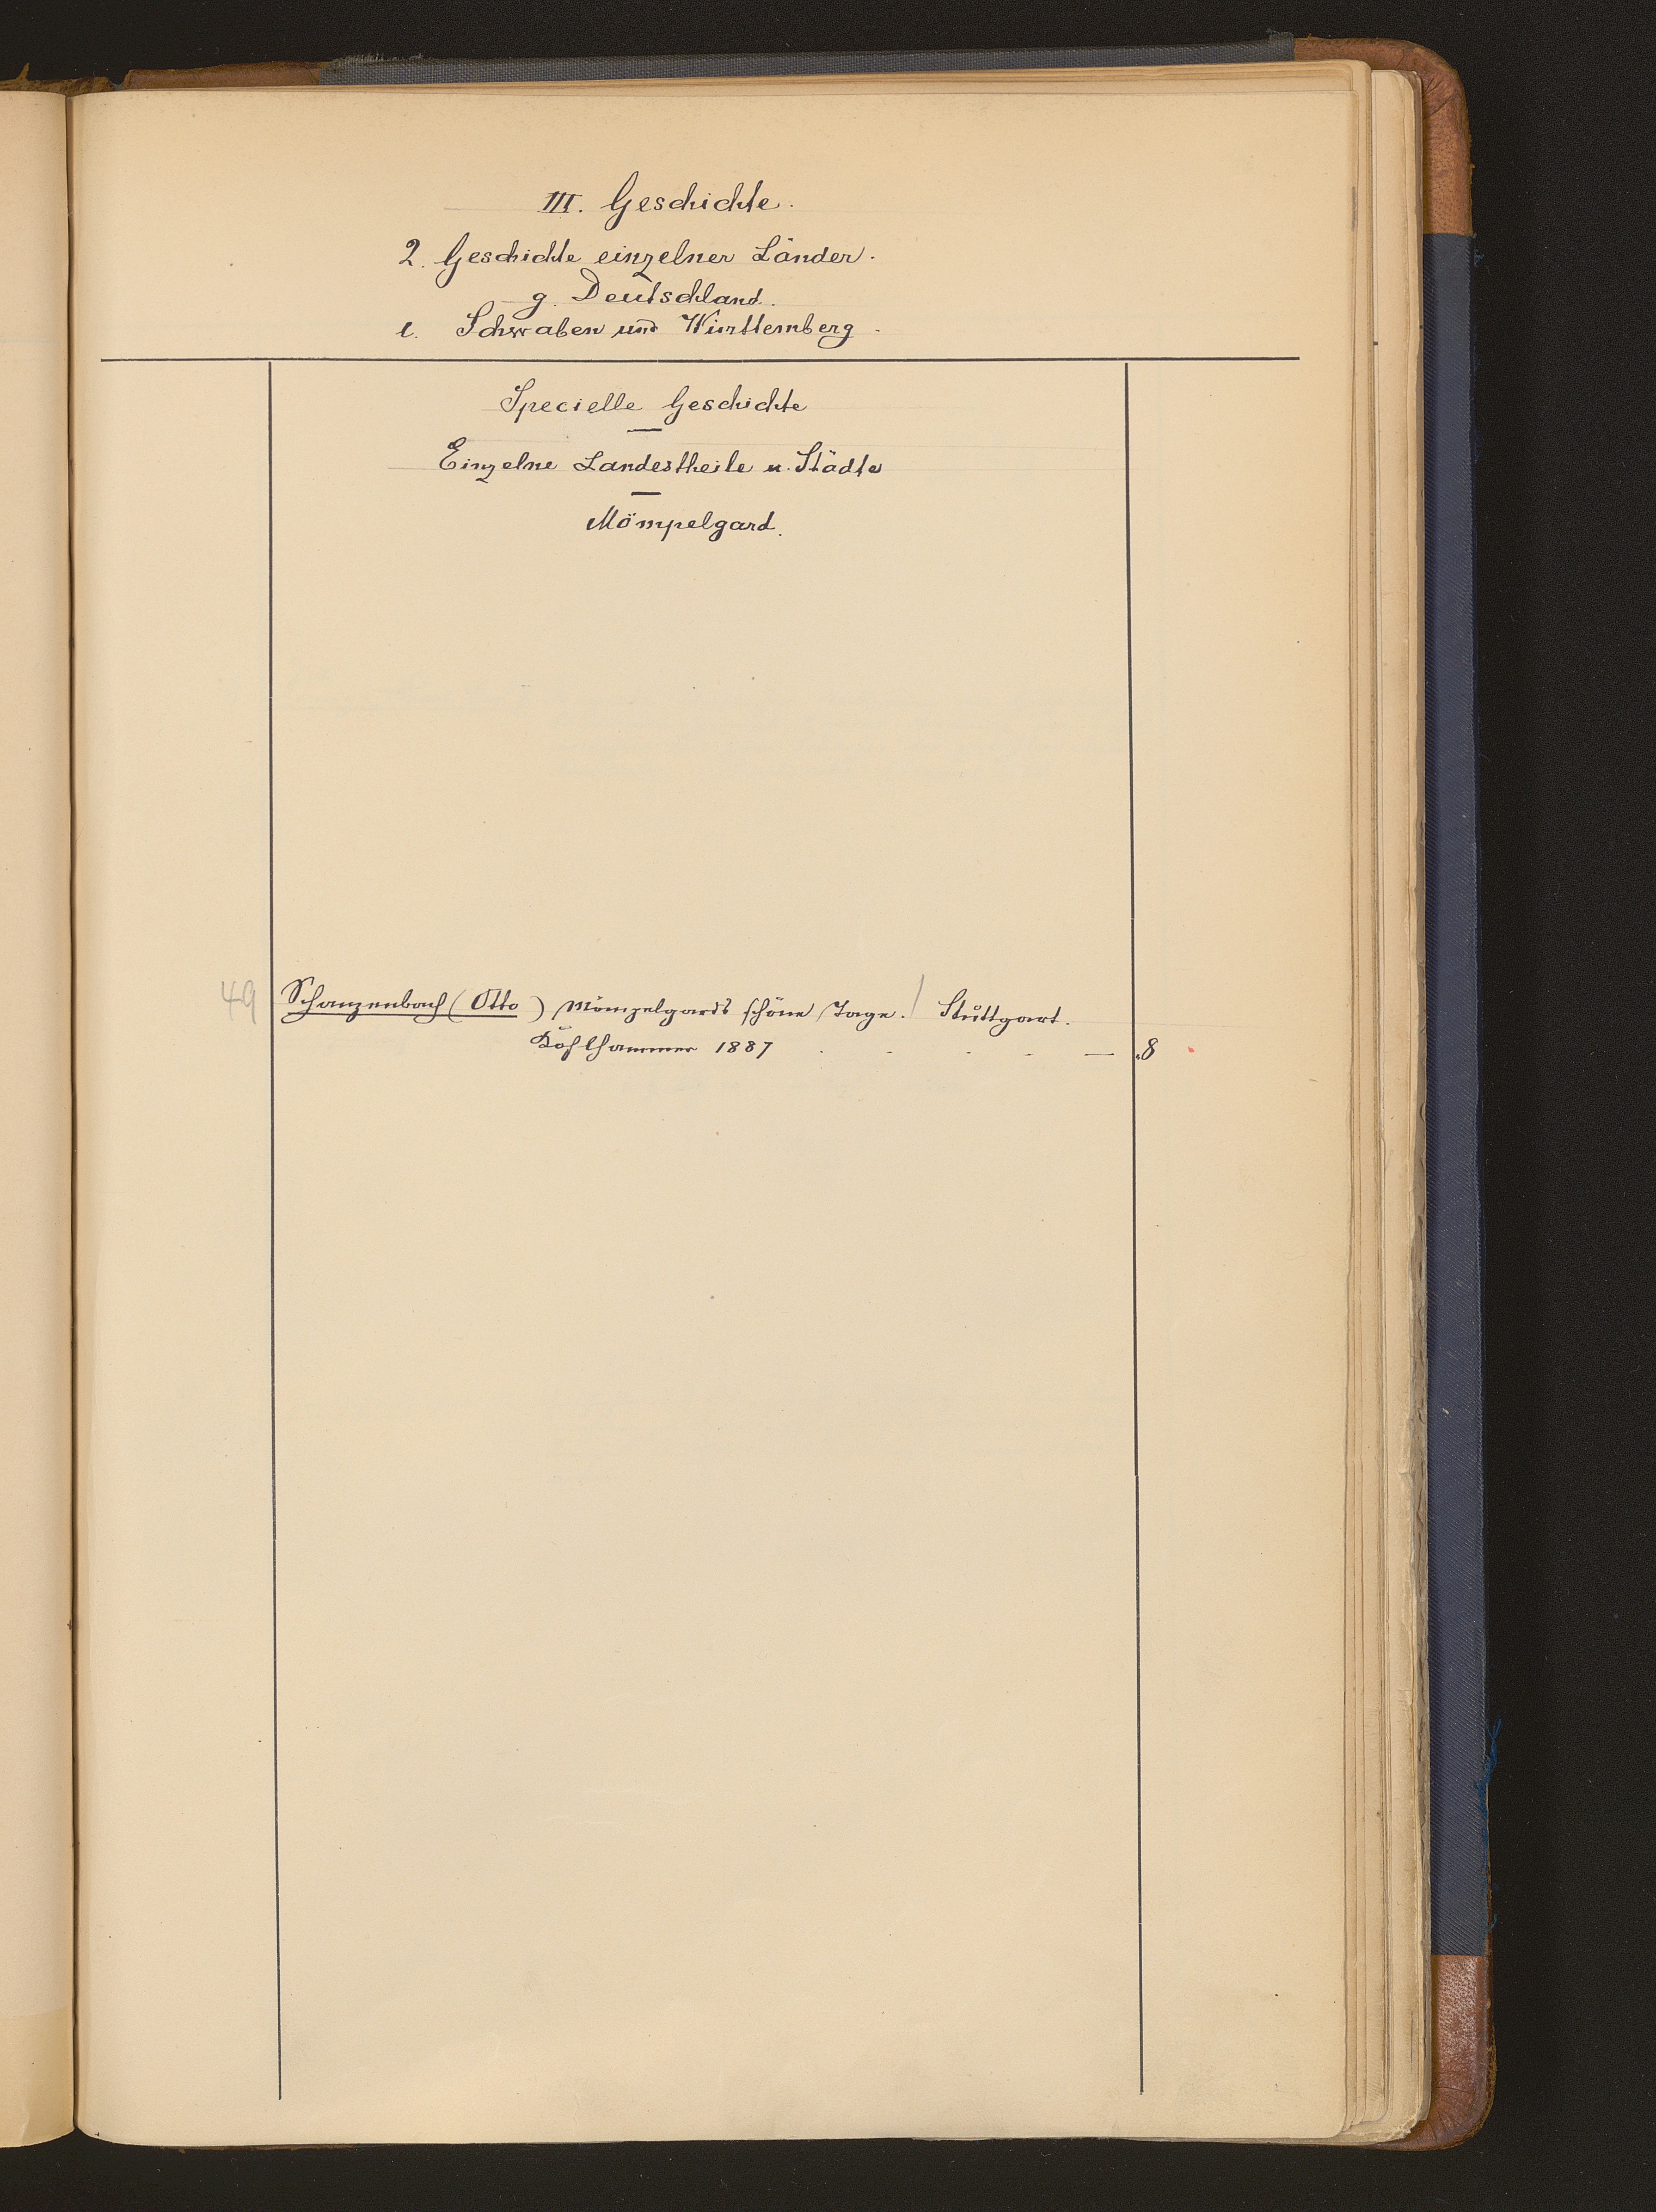 III. Geschichte.
2. Geschichte einzelner Länder.
g. Deutschland.
Schwaben und Württemberg.
Specielle Geschichte
Einzelne Landestheile u. Städte
Mömpelgard.
49 Schanzenbach (Otto) Mömpelgards schöne Tage. Stuttgart.
Kohlhammer 1887 . . . . — 8